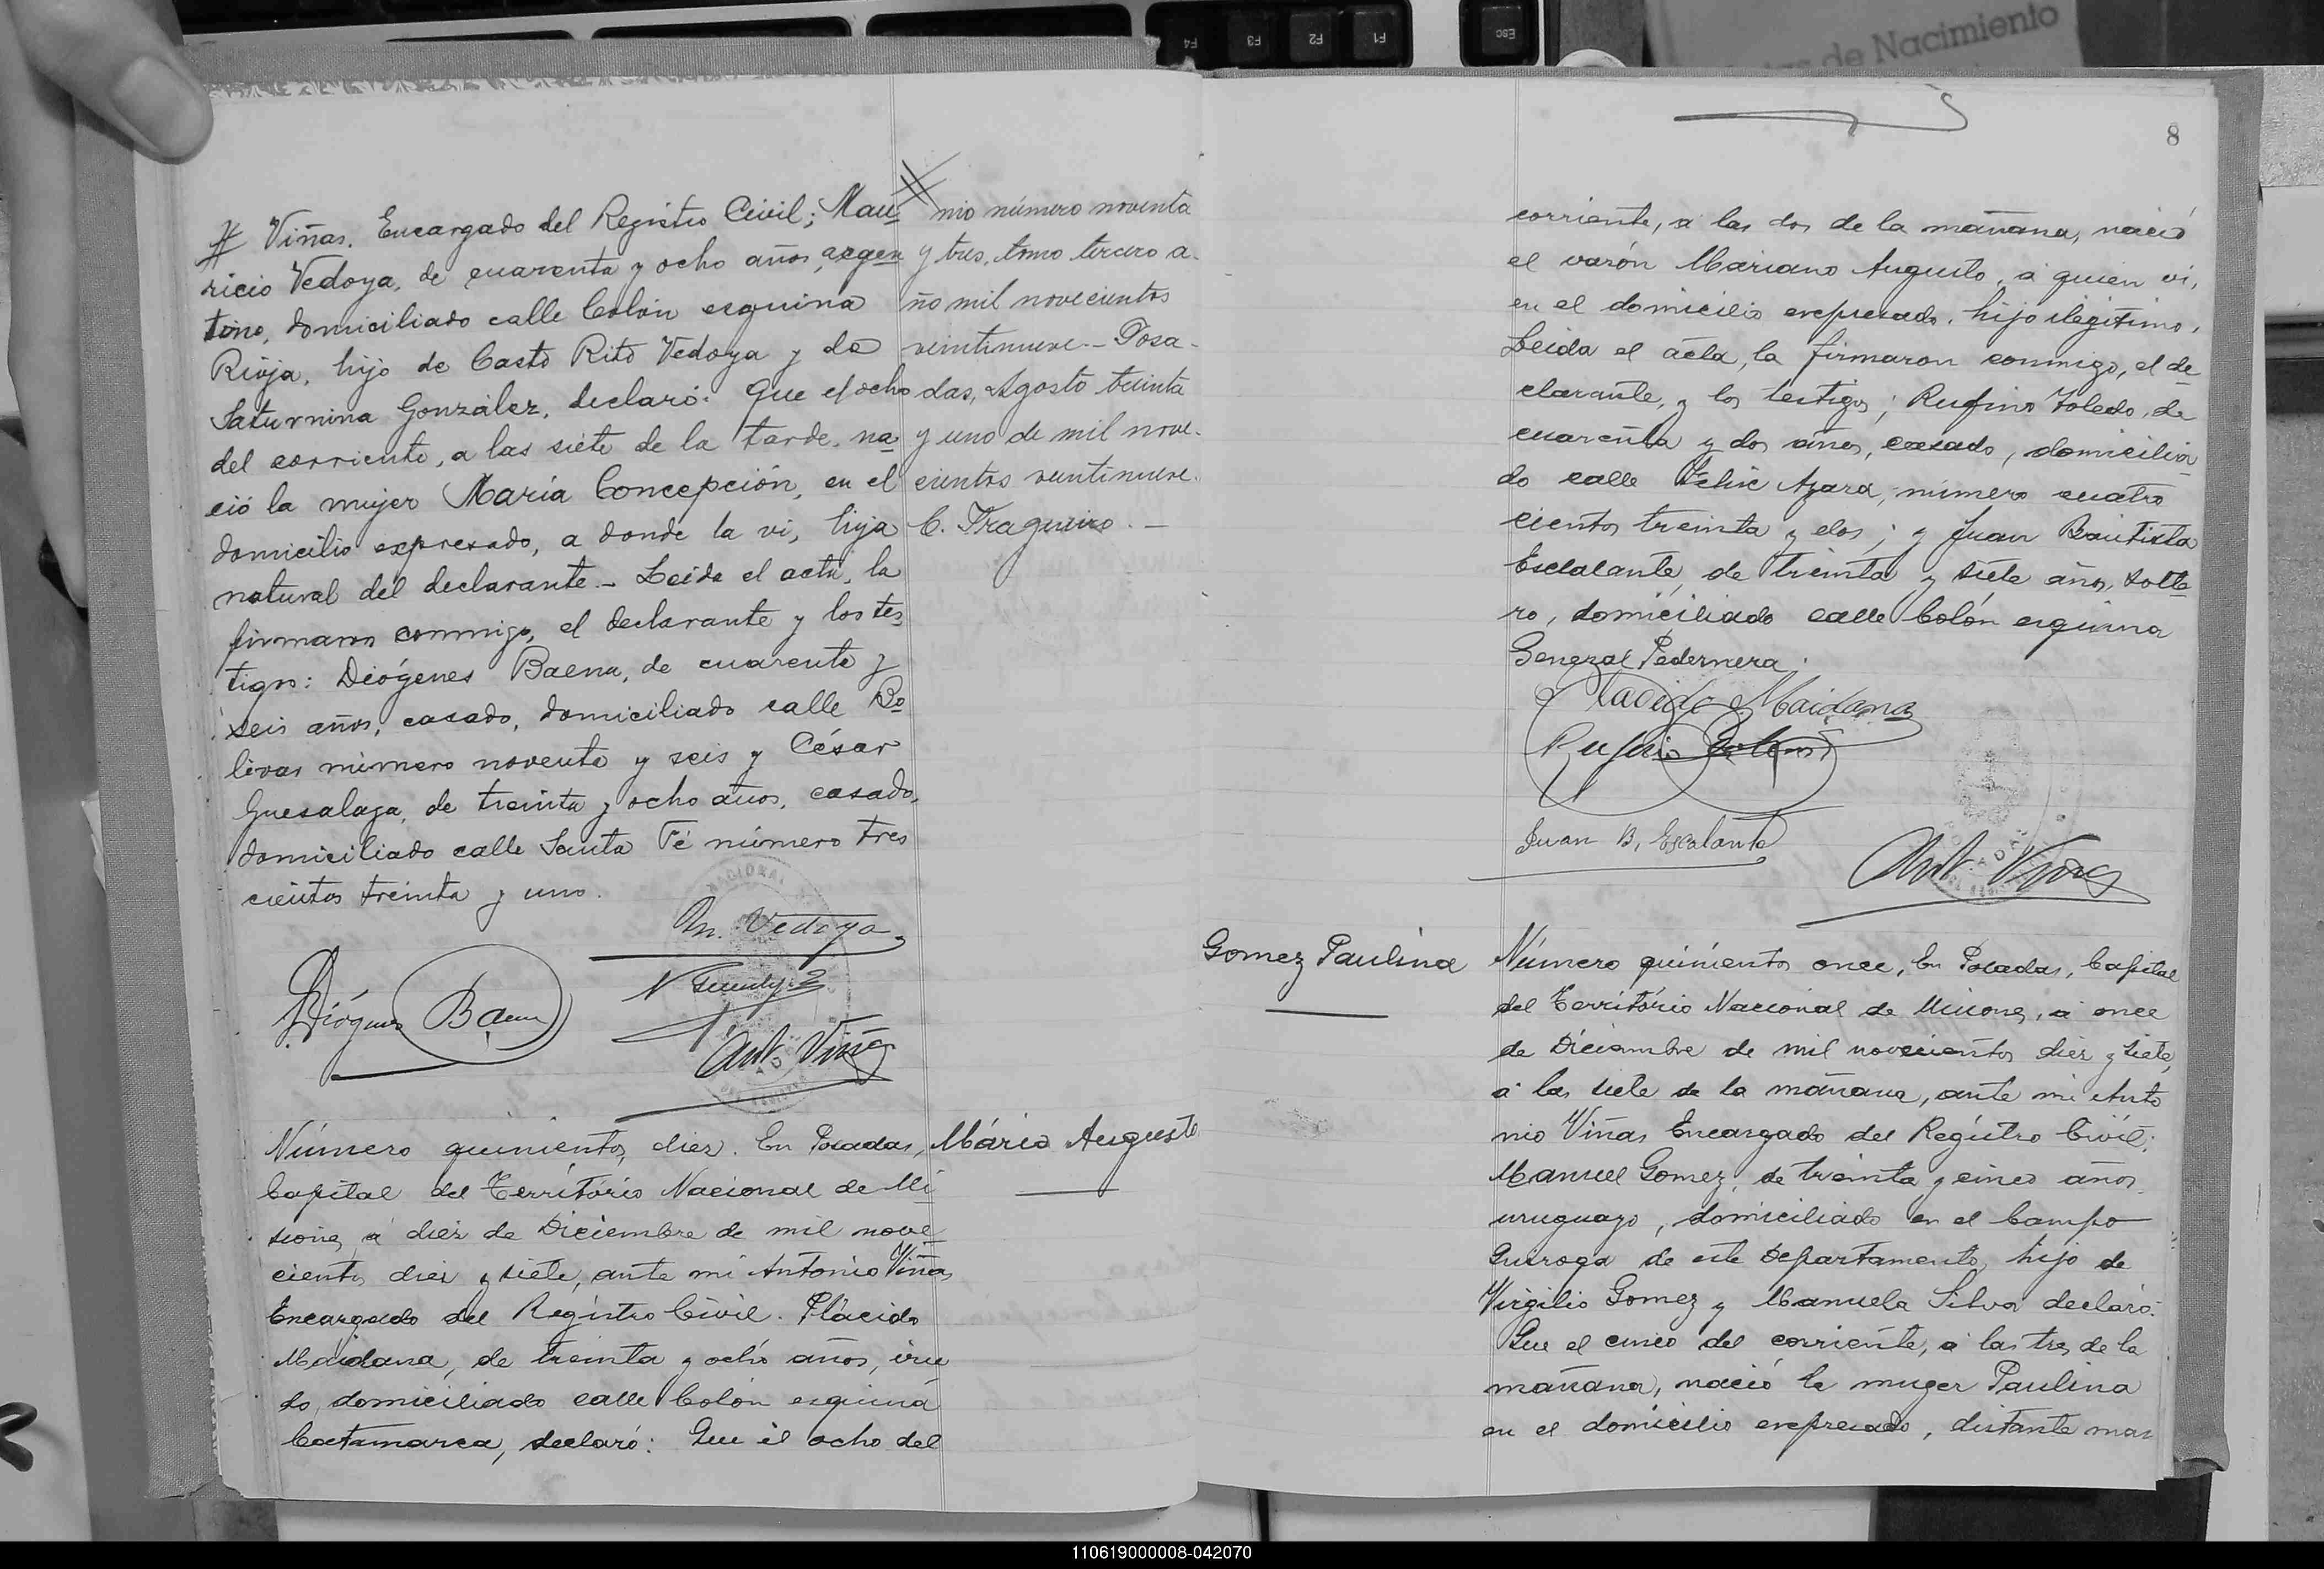 Viñas. Encargado del Registro Civil; Mau
ricio Vedoya, de cuarenta y ocho años, argen
tino, domiciliado calle Colón esquina
Rioja, hijo de Casto Rito Vedoya y de
Saturnina González, declaró: Que el ocho
del corriente, a las siete de la tarde, na
ció la mujer María Concepción, en el
domicilio expresado, a donde la vi, hija
natural del declarante.- Leida el acta, la
firmaron conmigo, el declarante y los tes
tigos: Diógenes Baena, de cuarenta y
seis años, casado, domiciliado calle Bo
livar número noventa y seis y César
Guesalaga, de treinta y ocho años, casado,
domiciliado calle Santa Fé número tres
cientos treinta y uno.
M. Vedoya
Diógenes Baena
Ant. Viñas
nio número noventa
y tres, tomo tercero a-
ño mil novecientos
veintinueve.- Posa-
das, Agosto treinta
y uno de mil nove-
cientos veintinueve.
C. Fragueiro.-
Número quinientos diez. En Posadas,
Capital del Território Nacional de Mi
siones, á diez de Diciembre de mil nove
cientos diez y siete, ante mi Antonio Viñas
Encargado del Registro Civil. Plácido
Maidana, de treinta y ocho años, viu
do, domiciliado calle Colón esquina
Catamarca, declaró: Que el ocho del
Mário Augusto
8
corriente, á las dos de la mañana, nació
el varón Mariano Augusto, á quien vi,
en el domicilio expresado, hijo ilegitimo,
Leida el acta, la firmaron conmigo, el de
clarante, y los testigos; Rufino Toledo, de
cuarenta y dos años, casado, domicilia
do calle Felix Azara, número cuatro
cientos treinta y dos; y Juan Bautista
Escalante, de treinta y siete años, solte
ro, domiciliado calle Colón esquina
General Pedernera.
Placido Maidana
Rufino Toledo
Juan B. Escalante
Ant. Viñas
Gomez Paulina
Número quinientos once, En Posadas, Capital
del Território Nacional de Misiones, á once
de Diciembre de mil novecientos diez y siete,
á las siete de la mañana, ante mi Anto
nio Viñas Encargado del Registro Civil;
Manuel Gomez, de treinta y cinco años
uruguayo, domiciliado en el Campo
Quiroga de este Departamento, hijo de
Virgilio Gomez y Manuela Silva declaró:
Que el cinco del corriente, á las tres de la
mañana, nació la muger Paulina
en el domicilio expresado, distante mas
de Nacimiento
Esc
F1
F2
F3
F4
110619000008-042070